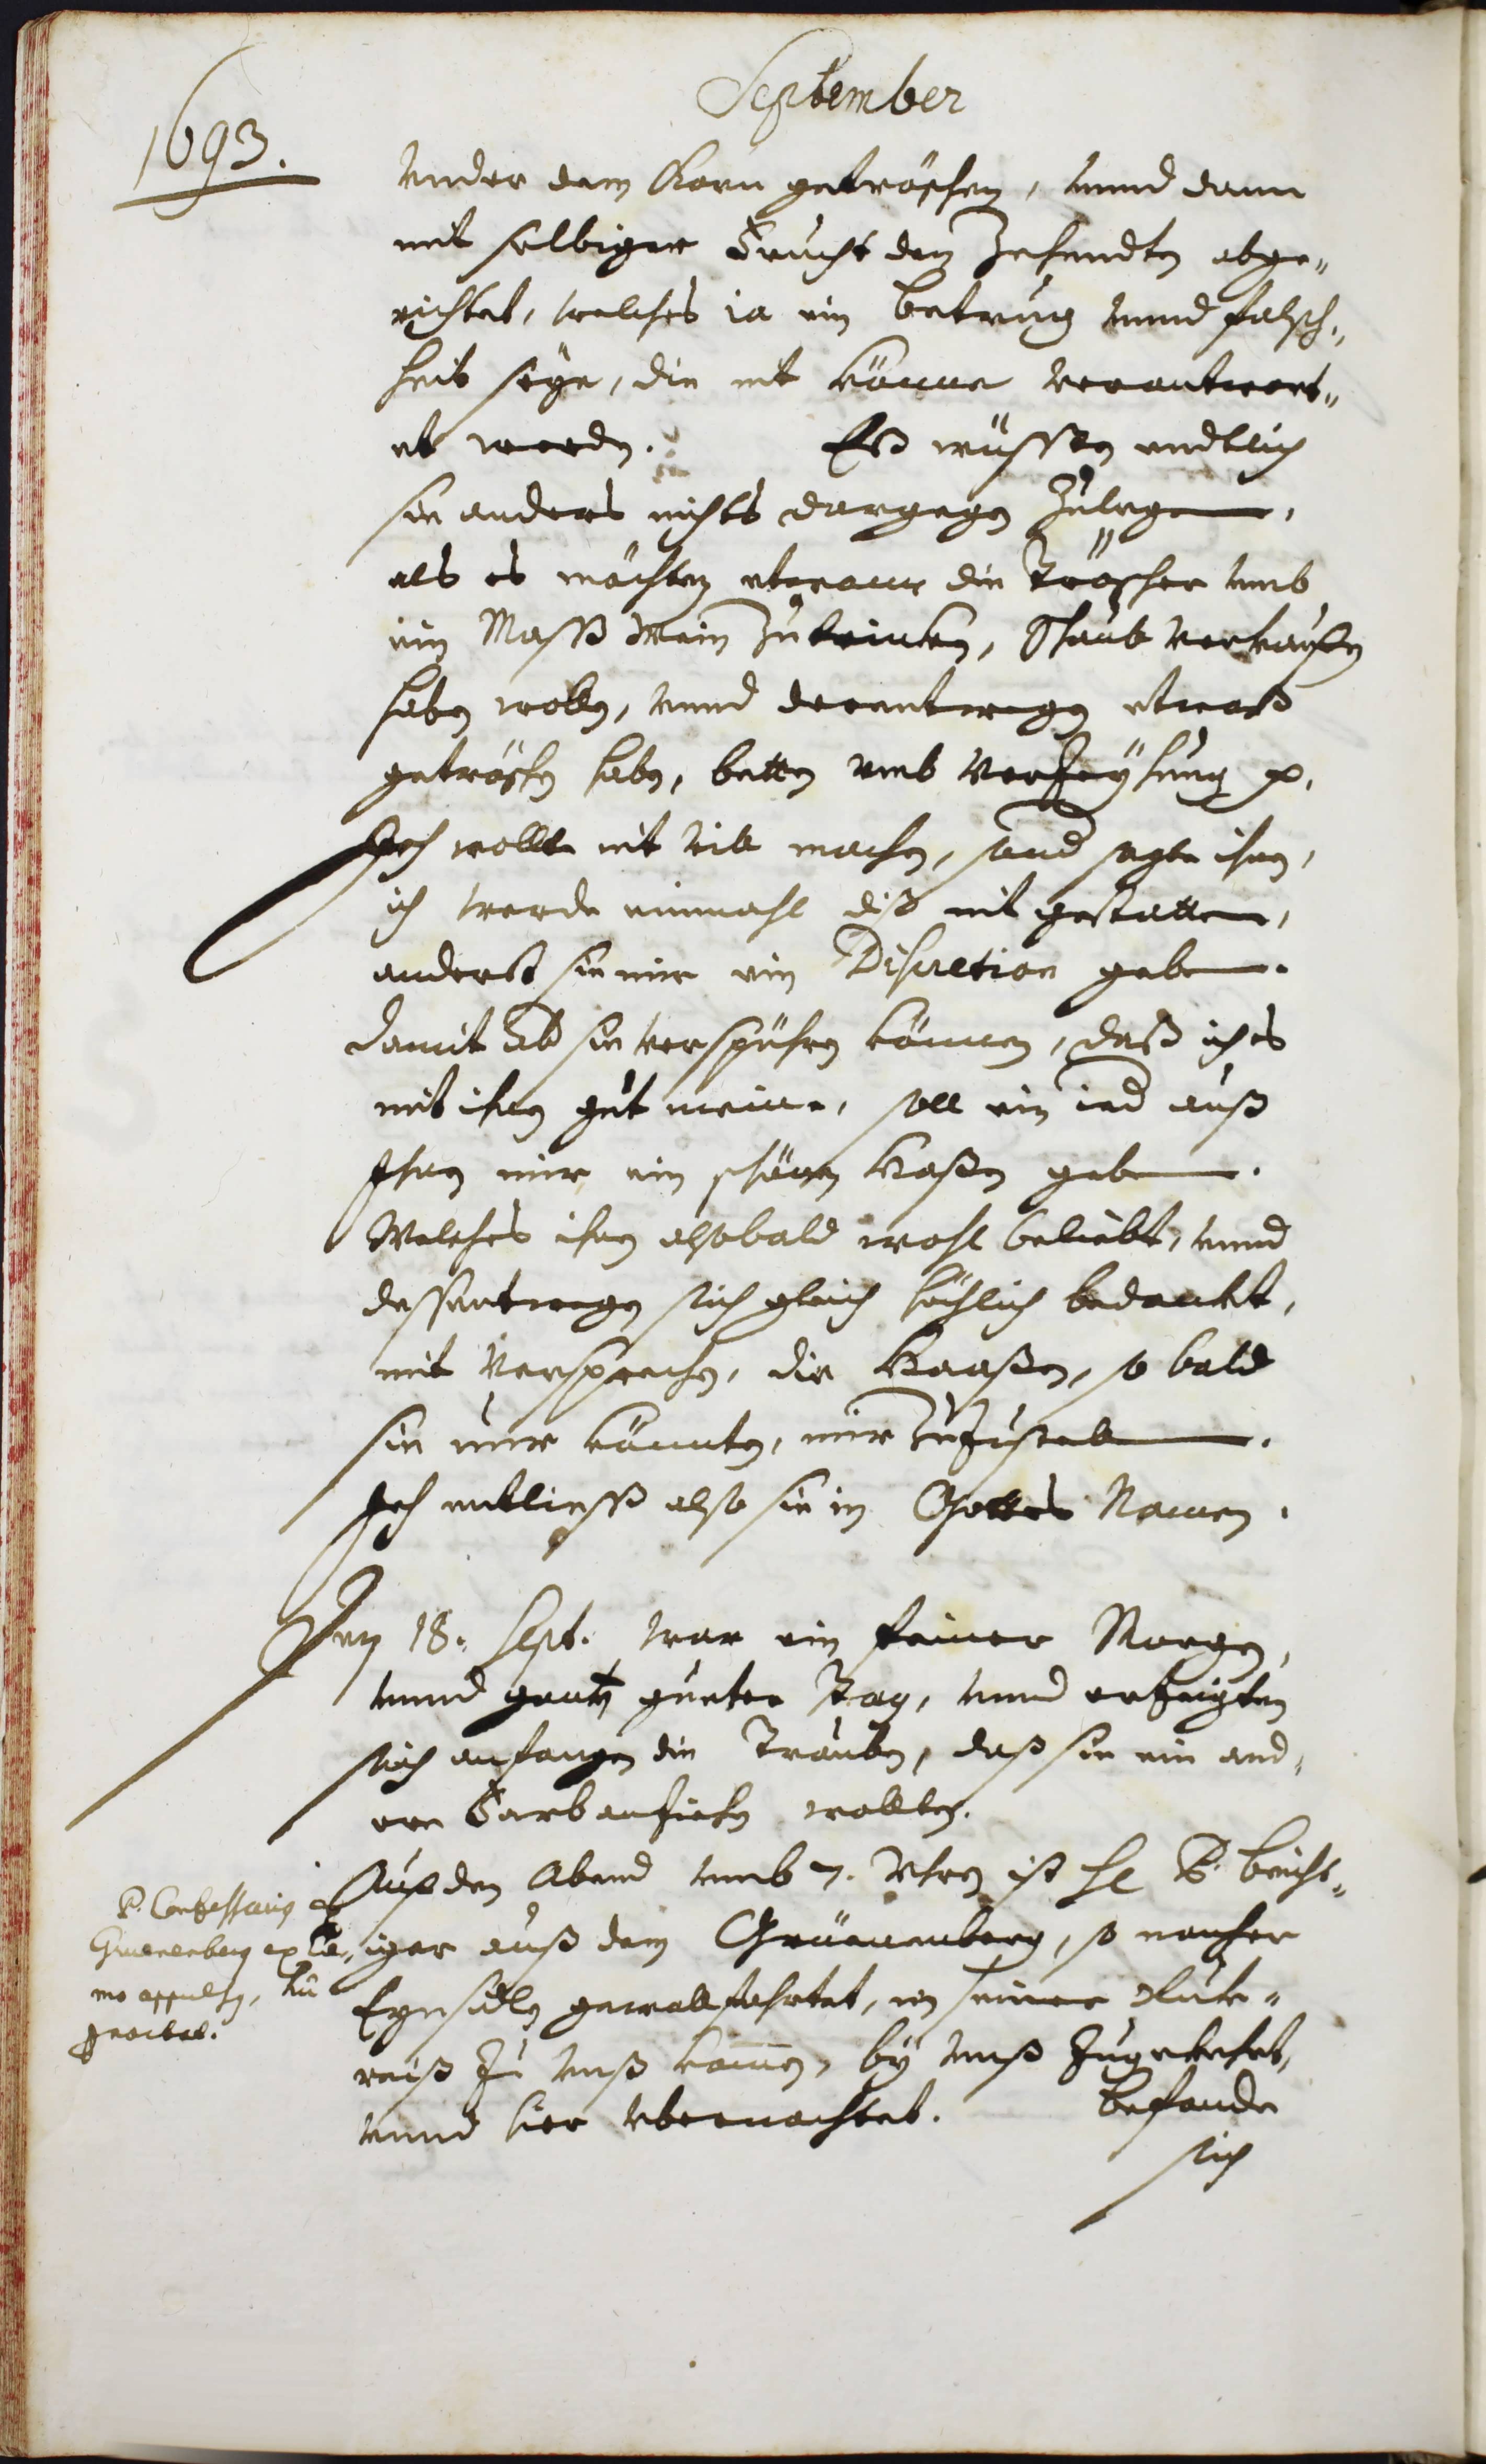 September
1693.
vnder dem Korn getröschen, vnnd dann
mit selbiger Frucht den Zehendten abge„
richtet, welches ia ein Betrug vnnd falsch„
heit seye, die nit könne verantwort„
et werden. Es wüssten endtlich
sie anders nichts dargegen zulegen,
als es möchten etwann die Tröscher vmb
ein Mass Wein zutrinken, Staub verkauffen
haben wollen, vnnd derentwegen etwaß
getröschen haben, betten vmb Verzeyhung p.
Ich wollte nit vil machen, sond sagte ihnen,
ich werde einmahl diß nit gestatten,
anderst sie mir ein Discretion geben.
Damit ab sie verspühren können, daß ich es
mit ihnen gut meine, soll ein ied auß
Ihnen mir ein schönen Haßen geben.
Welches ihnen alsobald wohl beliebt, vnnd
dessentwegen sich gleich höchlich bedankt,
mit Versprechen, die Haaßen, so bald
sie nur könnten, mir zuzustellen.
Ich entliess also sie in Gottes Namen.
Den 18. Sept. war ein feiner Morgen,
vnnd gantz gueter Tag, vnnd erzeigten
sich anfangen die Trauben, daß sie ein and„
ere Farb anziehen wollten.
Auf den Abend vmb 7. Vhren ist H P. Beicht„
iger auß dem Grüenenberg, so nacher
Eynsidlen gewallfahrtet, in seiner Ruk„
reiß zu vnß kommen, by vnß zugekehrt,
vnnd hier vbernachtet. Befande
sich
P. Confessarius
Gruenenberg ex Ere„
mo appulsus,